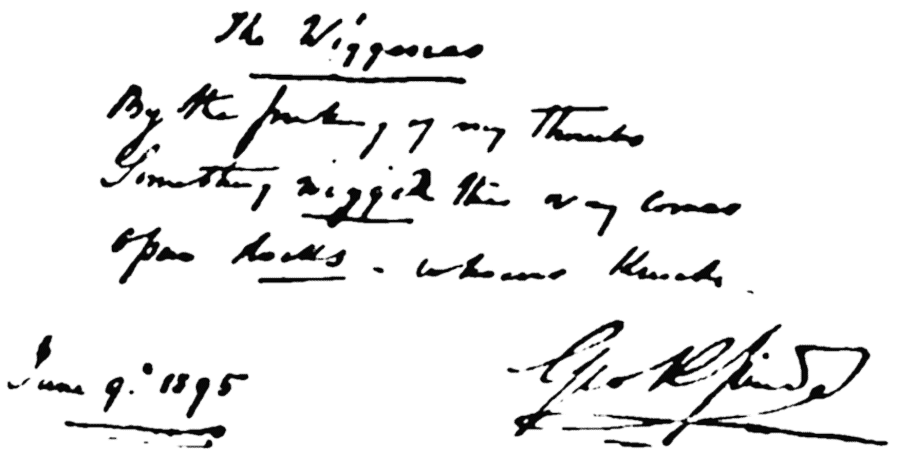 The
By the pricking of my Thumbs
Something this way comes
Open locks - whoever Knocks.
June 9. 1895
Geo R Sims